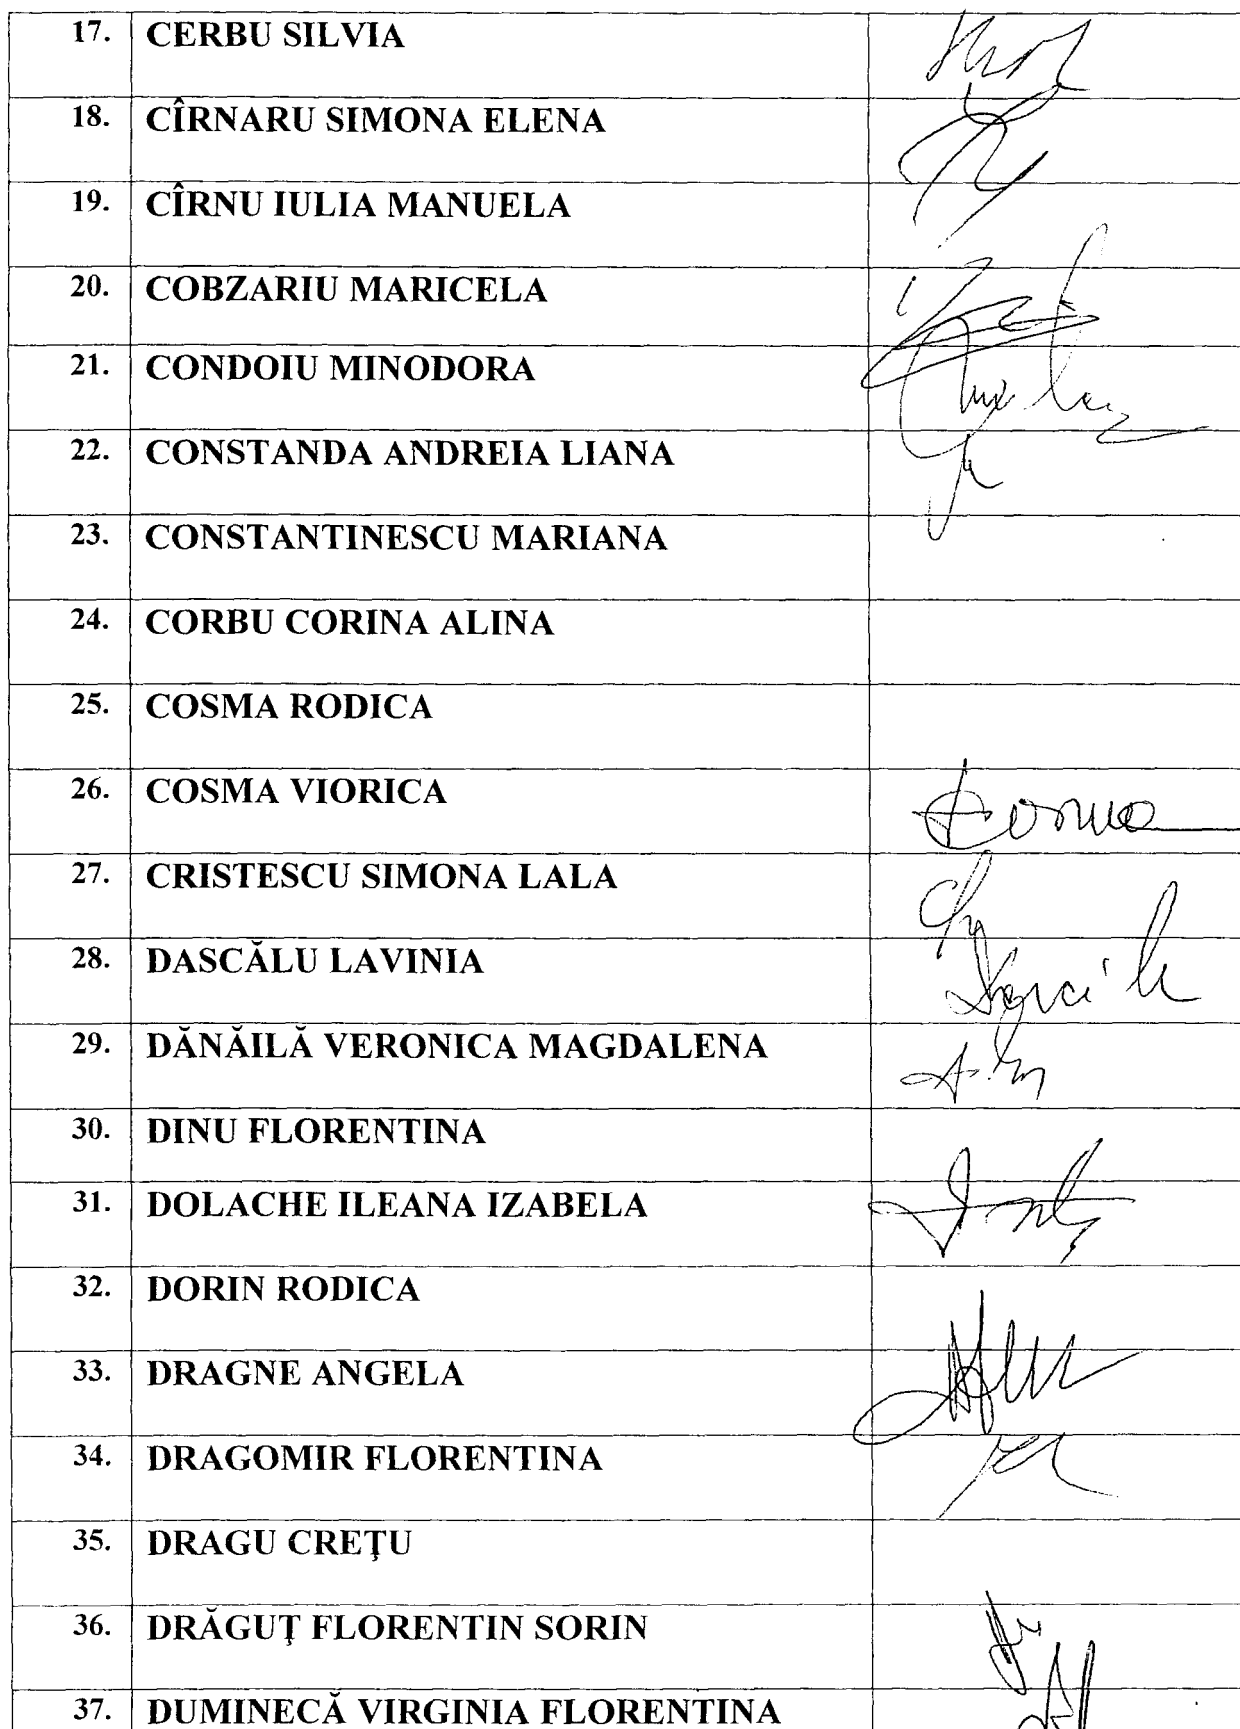 17. CERBU SILVIA
18. CÎRNARU SIMONA ELENA
19. CÎRNU IULIA MANUELA
20. COBZARIU MARICELA
21. CONDOIU MINODORA
22. CONSTANDA ANDREIA LIANA
23. CONSTANTINESCU MARIANA
24. CORBU CORINA ALINA
25. COSMA RODICA
26. COSMA VIORICA Cosma
27. CRISTESCU SIMONA LALA
28. DASCĂLU LAVINIA
29. DĂNĂILĂ VERONICA MAGDALENA
30. DINU FLORENTINA
31. DOLACHE ILEANA IZABELA
32. DORIN RODICA
33. DRAGNE ANGELA
34. DRAGOMIR FLORENTINA
35. DRAGU CREŢU
36. DRĂGUŢ FLORENTIN SORIN
37. DUMINECĂ VIRGINIA FLORENTINA